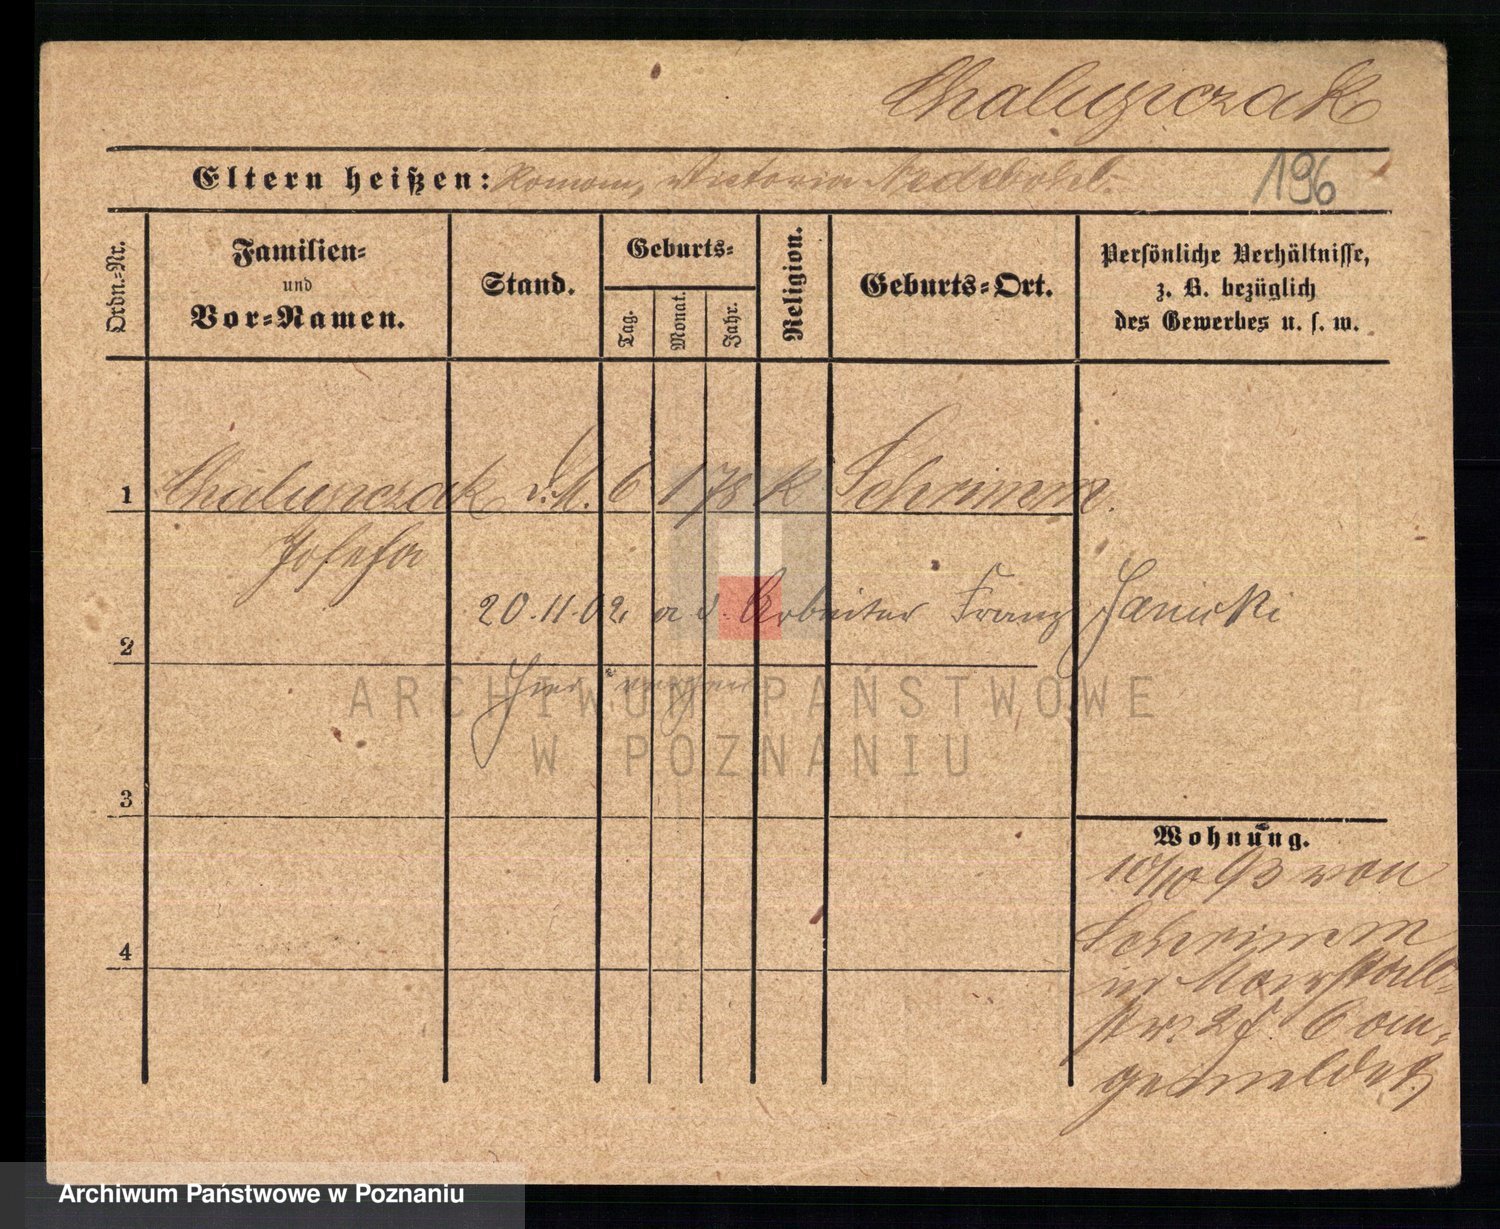 Chalupiczak
Eltern heißen: Roman, Victoria
196
Ordn.-Nr.
Familien-
und
Vor-Namen.
Stand.
Geburts-
Tag.
Monat.
Jahr.
Religion.
Geburts-Ort.
Persönliche Verhältnisse,
z. B. bezüglich
des Gewerbes u. s. w.
1 Chalupiczak d. M. 6 1 78 K Schrimm.
Josefa
20.11.02 a d. Arbeiter Franz Janicki
2
hier
3
Wohnung.
10/10 93 von
Schrimm
4
in Marstall-
str. 2 f. 6 an-
gemeldet
ARCHIWUM PAŃSTWOWE
W POZNANIU
Archiwum Państwowe w Poznaniu